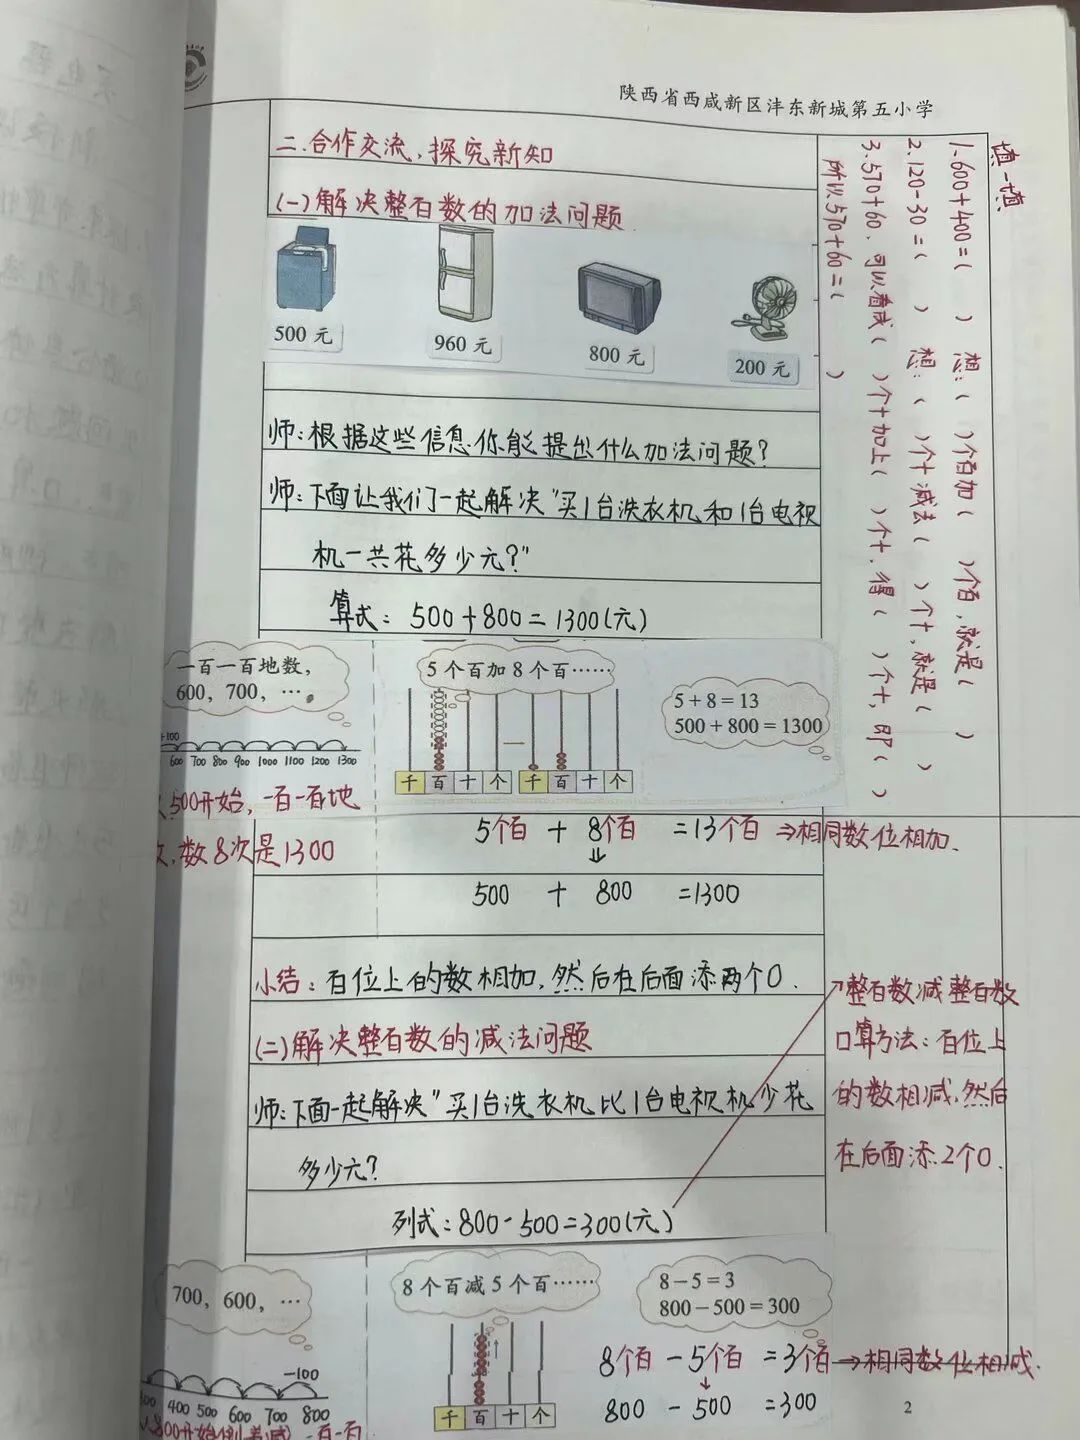 陕西省西咸新区沣东新城第五小学
二.合作交流,探究新知
(一)解决整百数的加法问题
500 元
960 元
800 元
200 元
师:根据这些信息你能提出什么加法问题?
师:下面让我们一起解决"买1台洗衣机和1台电视
机一共花多少元?"
算式:500+800=1300(元)
一百一百地数,
600,700,…。
+100
600 700 800 900 1000 1100 1200 1300
5个百加8个百……
千 百 十 个 千 百 十 个
5+8=13
500+800=1300
500开始,一百一百地
数8次是1300
5个百 + 8个百 =13个百 ⇒相同数位相加.
⇓
500 + 800 =1300
小结:百位上的数相加,然后在后面添两个0.
(二)解决整百数的减法问题
师:下面一起解决"买1台洗衣机比1台电视机少花
多少元?
列式:800-500=300(元)
700,600,…
-100
400 500 600 700 800
800开始倒着减,一百一百
8个百减5个百……
千 百 十 个
8-5=3
800-500=300
8个百 - 5个百 =3个百→相同数位相减.
↓
800 - 500 =300
填一填
1.600+400=( ) 想:( )个百加( )个百,就是( )
2.120-30=( ) 想:( )个十减去( )个十,就是( )
3.570+60,可以看成( )个十加上( )个十,得( )个十,即( )
所以570+60=( )
整百数减整百数
口算方法:百位上
的数相减,然后
在后面添2个0.
2